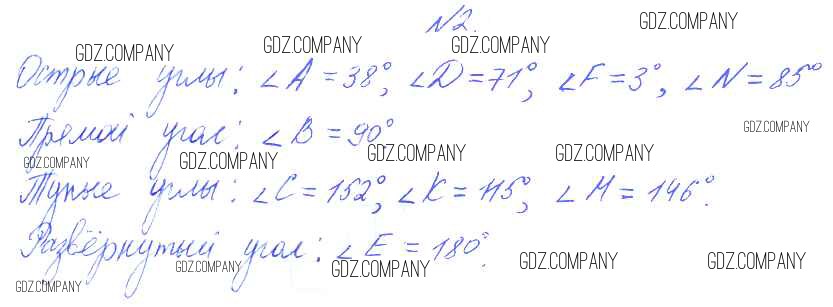 N2.
Острые углы: ∠A = 38°, ∠D = 71°, ∠F = 3°, ∠N = 85°
Прямой угол: ∠B = 90°
Тупые углы: ∠C = 152°, ∠K = 115°, ∠M = 146°.
Развёрнутый угол: ∠E = 180°.
GDZ.COMPANY
GDZ.COMPANY
GDZ.COMPANY
GDZ.COMPANY
GDZ.COMPANY
GDZ.COMPANY
GDZ.COMPANY
GDZ.COMPANY
GDZ.COMPANY
GDZ.COMPANY
GDZ.COMPANY
GDZ.COMPANY
GDZ.COMPANY
GDZ.COMPANY